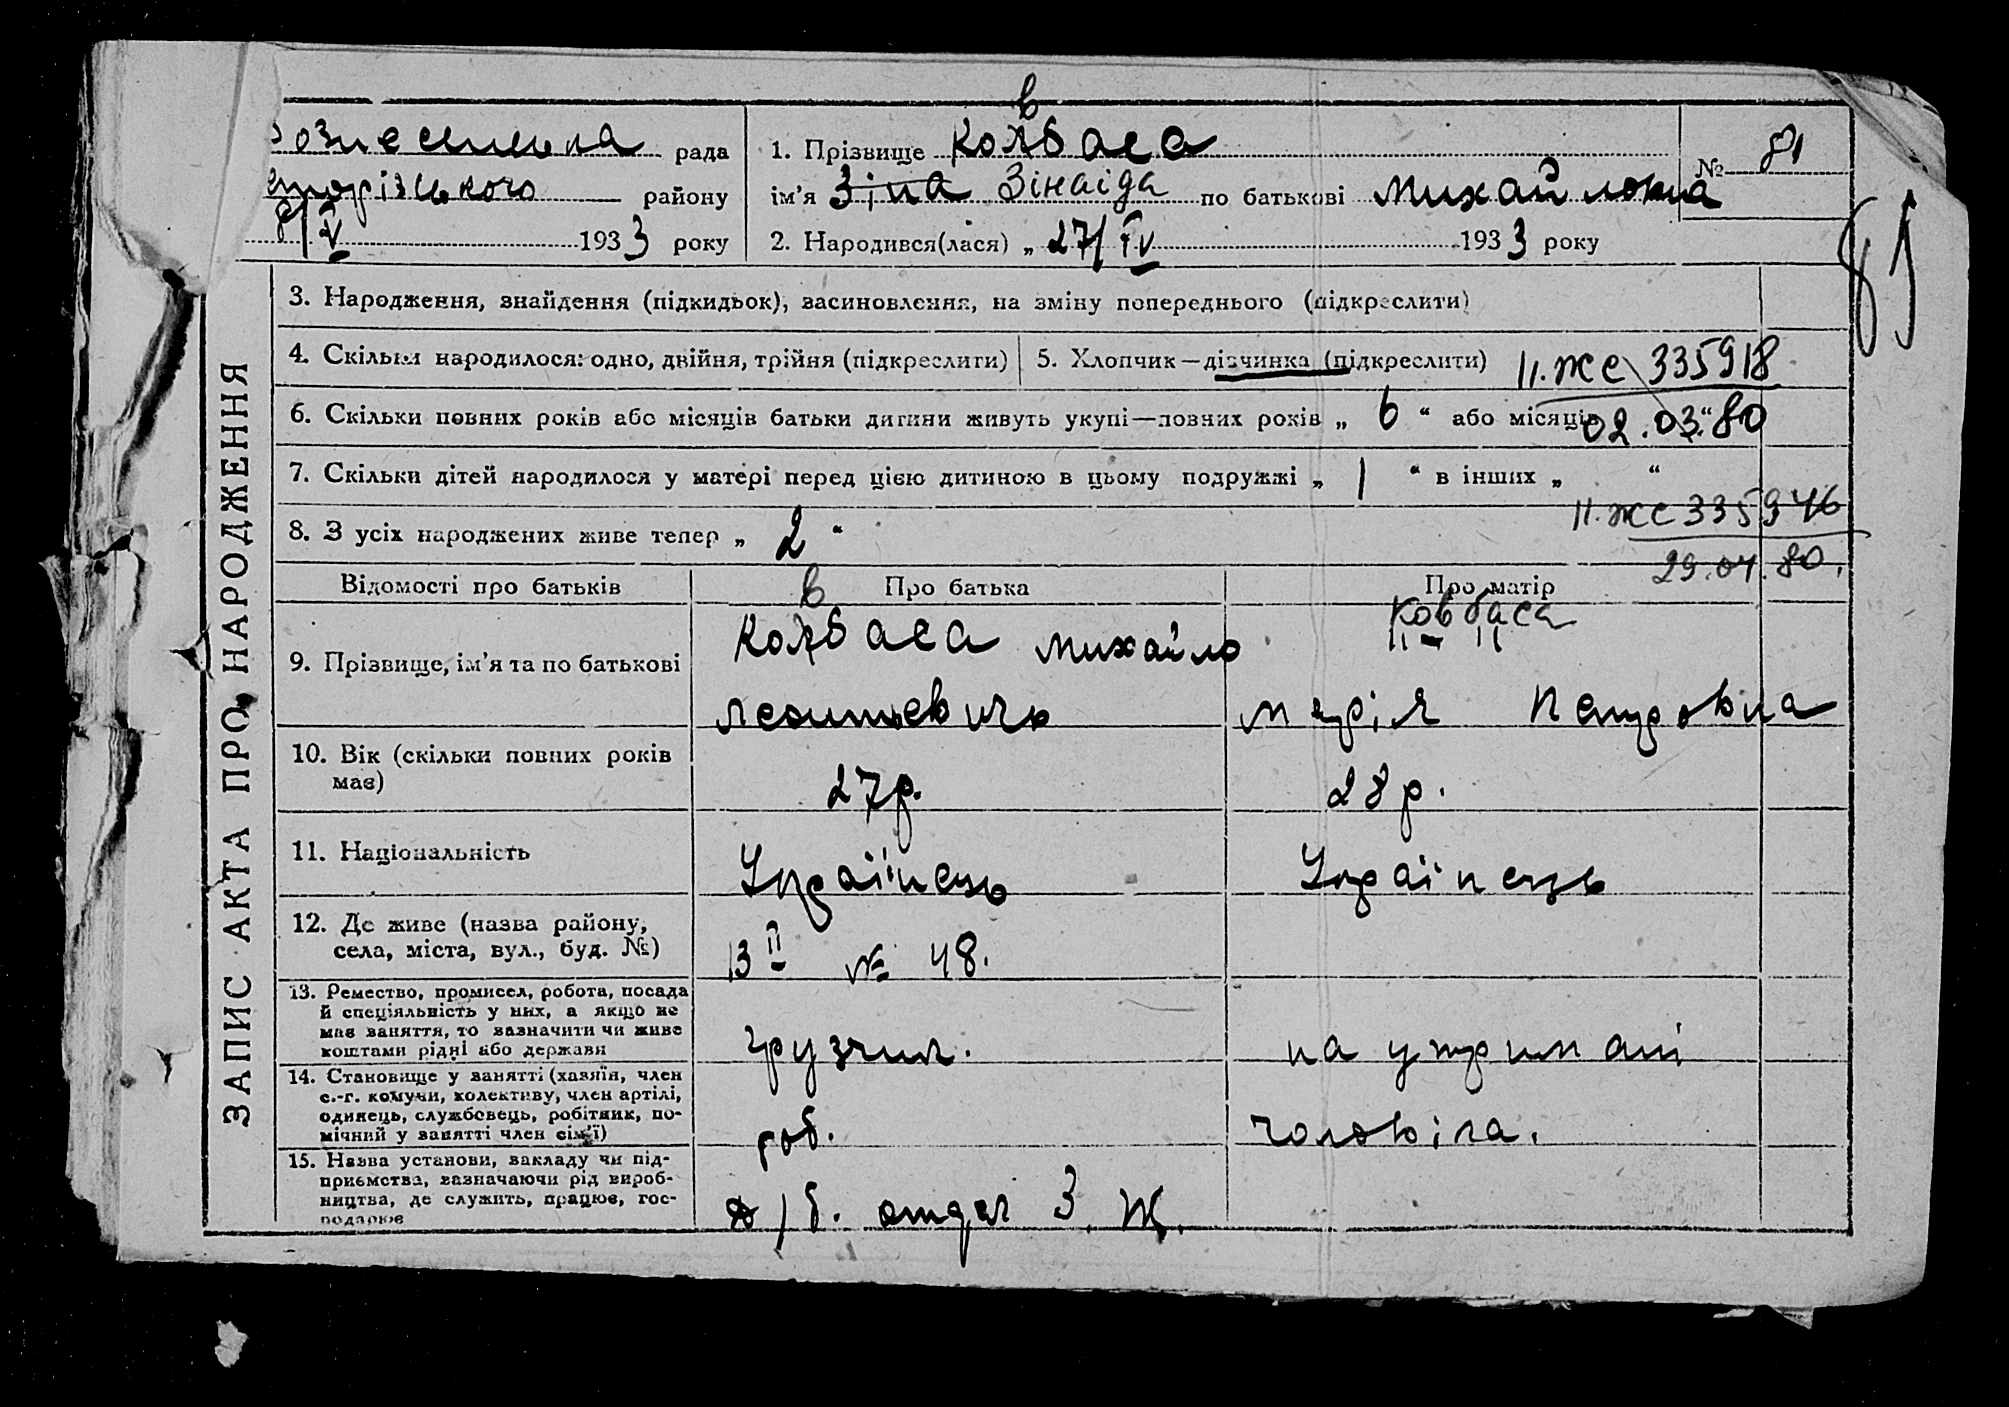 ЗАПИС АКТА ПРО НАРОДЖЕННЯ
рада
району
8/V 1933 року
1. Прізвище Ковбаса
ім'я Зіна Зінаїда по батькові Михайловна
2. Народився(лася) „ 27/IV 1933 року
№ 81
81
3. Народження, знайдення (підкидьок), засиновлення, на зміну попереднього (підкреслити)
4. Скільки народилося: одно, двійня, трійня (підкреслити)
5. Хлопчик—дівчинка (підкреслити)
II.ЖС 335918
6. Скільки повних років або місяців батьки дитини живуть укупі—повних років „ 6 “ або місяців
02.03.80
7. Скільки дітей народилося у матері перед цією дитиною в цьому подружжі „ 1 “ в інших „ “
II.ЖС 335946
8. З усіх народжених живе тепер „ 2 “
29.04.80.
Відомості про батьків
Про батька
Про матір
9. Прізвище, ім'я та по батькові
Ковбаса Михайло
Леонтьевичь
Ковбаса
II - II
Марія Петровна
10. Вік (скільки повних років має)
27р.
28р.
11. Національність
Українець
Українець
12. Де живе (назва району,
села, міста, вул., буд. №)
13 II № 48.
13. Ремество, промисел, робота, посада
й спеціяльність у них, а якщо не
має заняття, то зазначити чи живе
коштами рідні або держави
грузчик.
на утримані
14. Становище у занятті (хазяїн, член
с.-г. комуни, колективу, член артілі,
одинець, службовець, робітник, по-
мічний у занятті член сім'ї)
роб.
чоловіка.
15. Назва установи, закладу чи під-
приємства, зазначаючи рід вироб-
ництва, де служить, працює, гос-
подарює
отдел З. Ж.